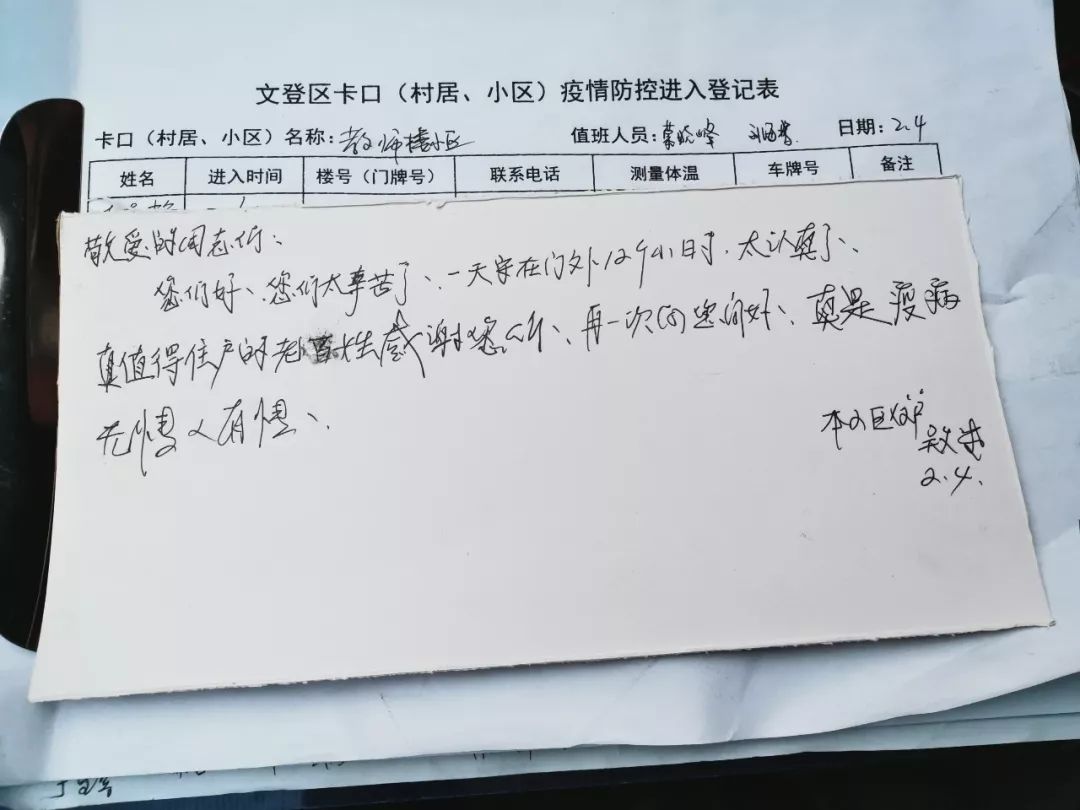 文登区卡口（村居、小区）疫情防控进入登记表
卡口（村居、小区）名称：教师楼小区 值班人员： 日期：2.4
姓名 进入时间 楼号（门牌号） 联系电话 测量体温 车牌号 备注
敬爱的同志们、
您们好、您们太辛苦了、一天守在门外12个小时、太认真了、
真值得住户的老百姓感谢您们、再一次向您问好、真是疫病
无情人有情、
本小区住户
2.4.